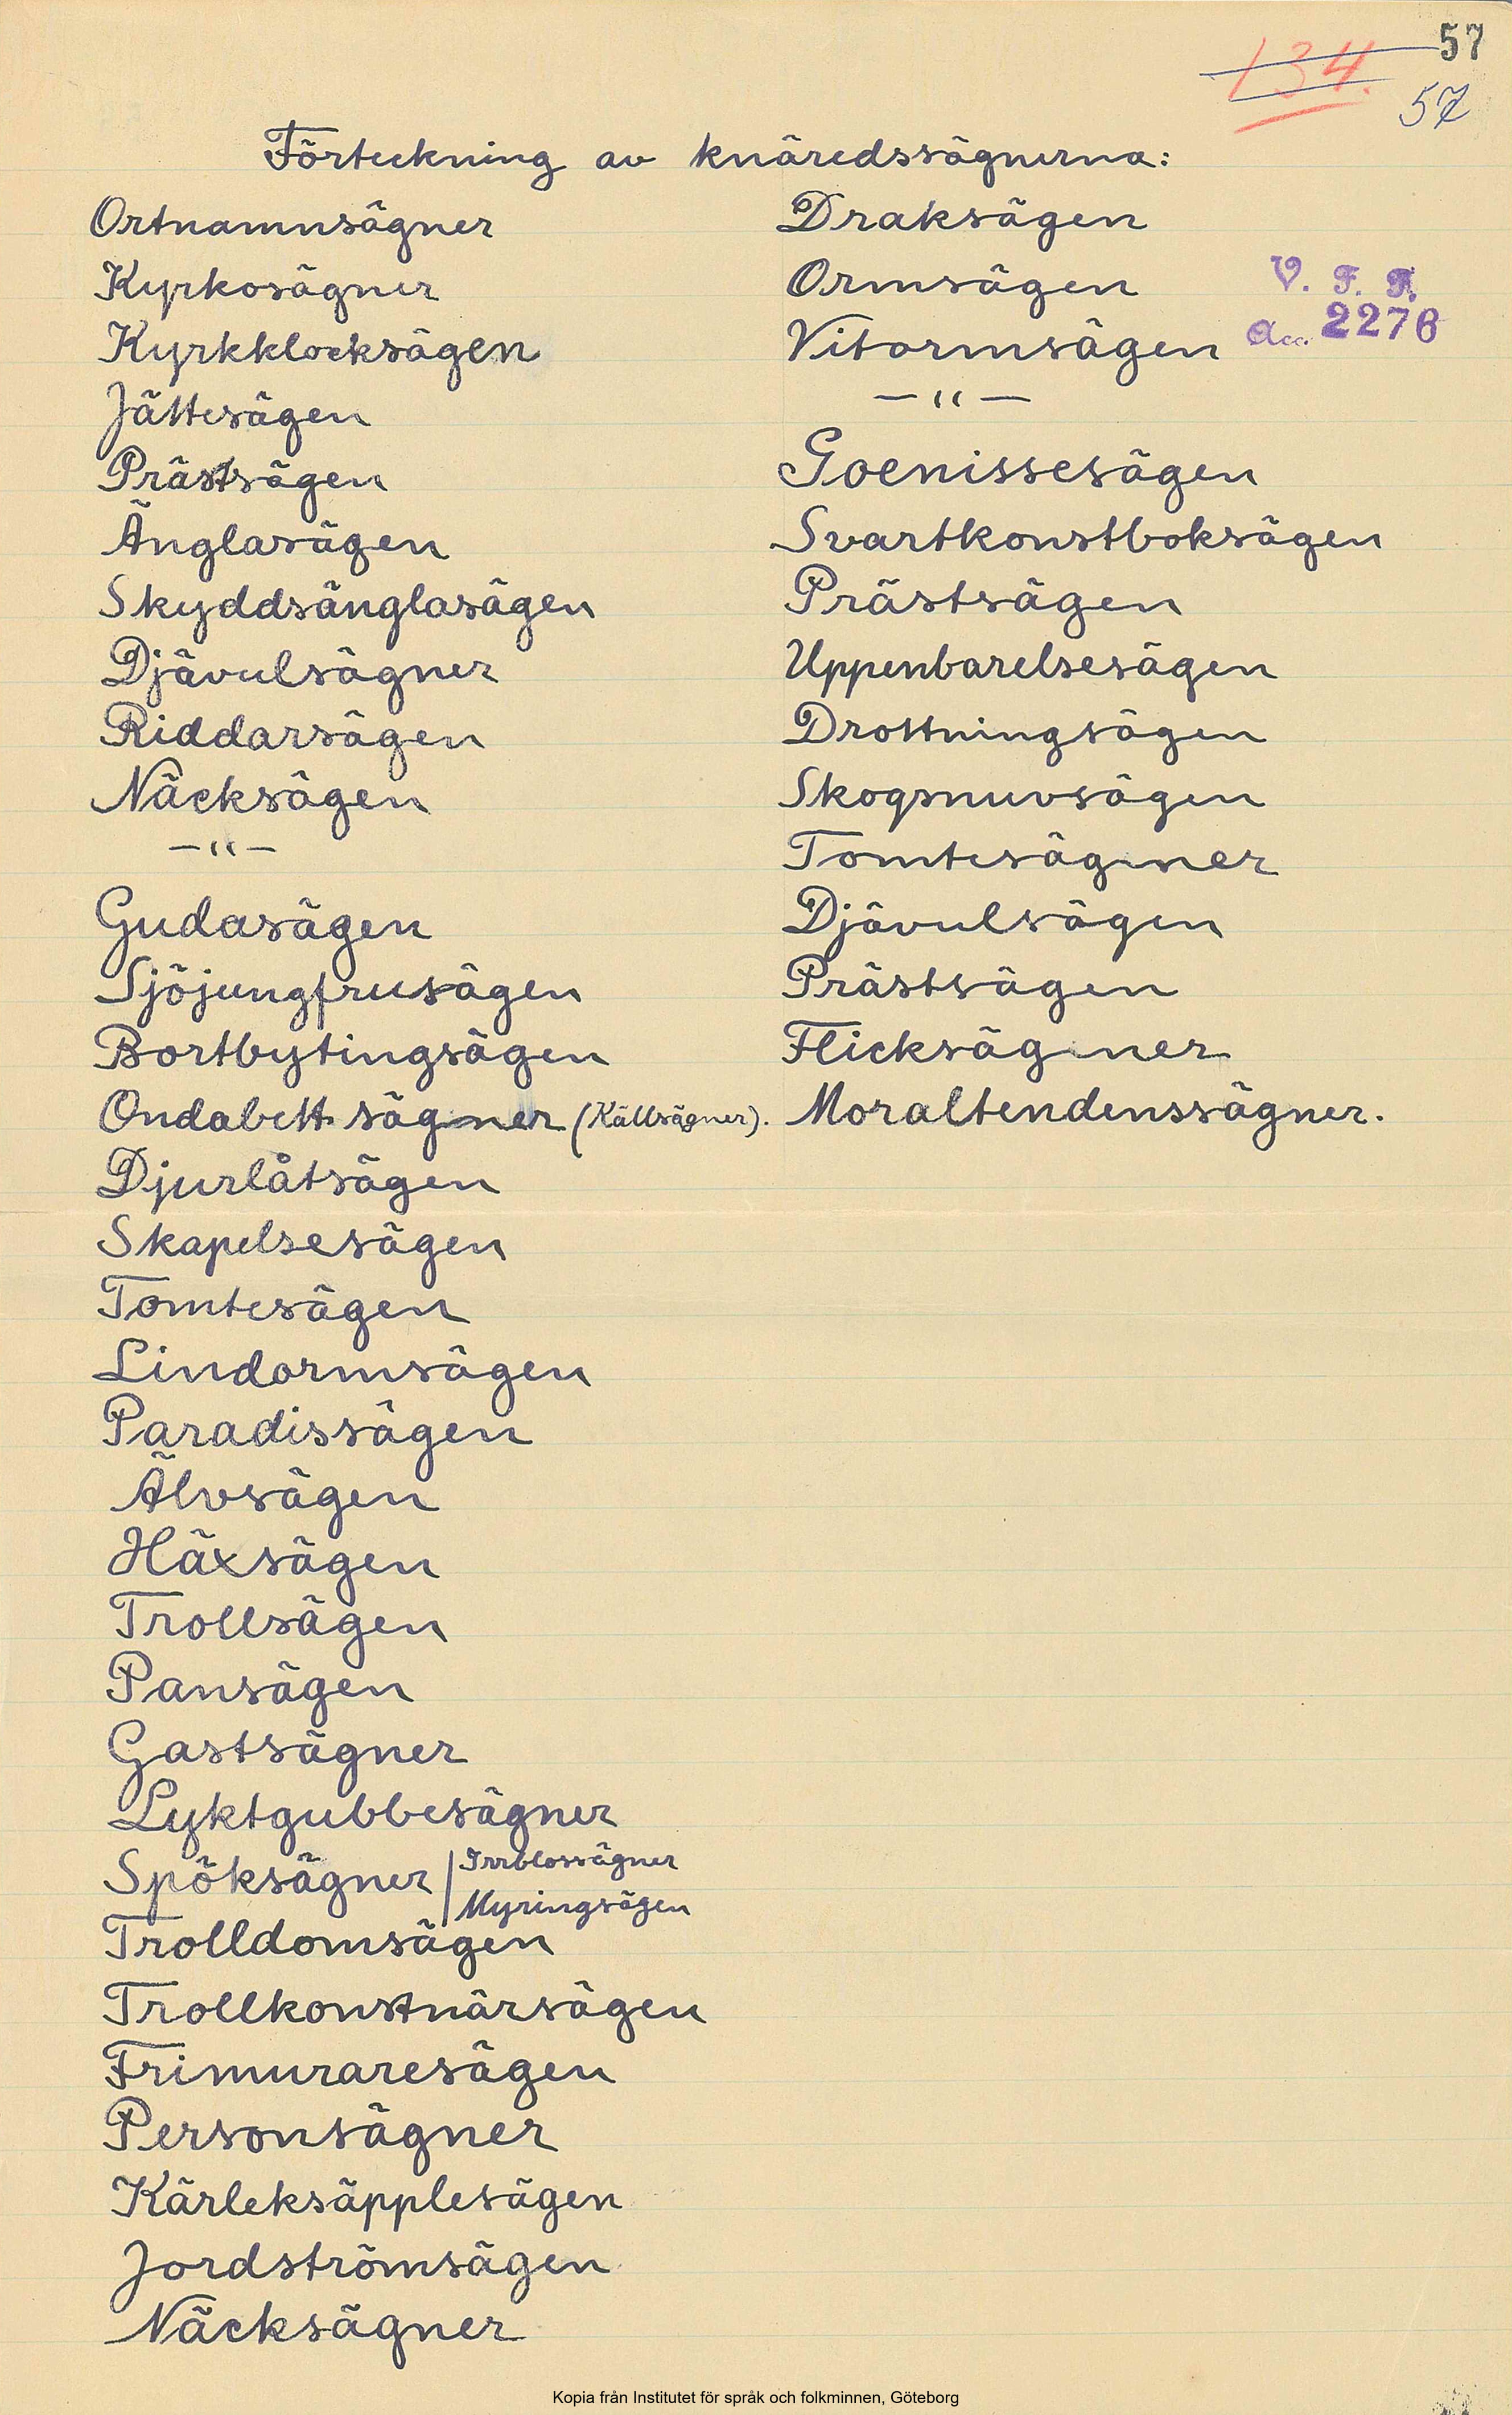 57
134.
57
Förteckning av knäredssägnerna:
Ortnamnsägner
Kyrkosägner
Kyrkklocksägen
Jättesägen
Prästsägen
Änglasägen
Skyddsänglasägen
Djävulsägner
Riddarsägen
Näcksägen
—"—
Gudasägen
Sjöjungfrusägen
Bortbytingsägen
Ondabettsägner (Källsägner).
Djurlåtsägen
Skapelsesägen
Tomtesägen
Lindormsägen
Paradissägen
Älvsägen
Häxsägen
Trollsägen
Pansägen
Gastsägner
Lyktgubbesägner
Spöksägner
Irrblossägner
Myringsägen
Trolldomsägen
Trollkonstnärsägen
Frimuraresägen
Personsägner
Kärleksäpplesägen
Jordströmsägen
Näcksägner
Draksägen
Ormsägen
V. F. F.
Acc. 2276
Vitormsägen
—"—
Goenissesägen
Svartkonstboksägen
Prästsägen
Uppenbarelsesägen
Drottningsägen
Skogsnuvsägen
Tomtesägner
Djävulsägen
Prästsägen
Flicksägner
Moraltendenssägner.
Kopia från Institutet för språk och folkminnen, Göteborg